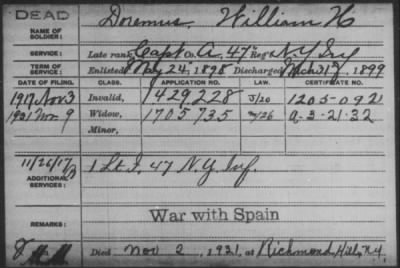 DEAD
Doremus William H
NAME OF SOLDIER:
SERVICE: Late rank, Capt Co. A, 47" Reg't N.Y. Inf
TERM OF SERVICE: Enlisted May 24, 1898 Discharged Mch. 31, 1899
DATE OF FILING. CLASS. APPLICATION NO. LAW. CERTIFICATE NO.
1917 Nov 3 Invalid, 1429228 J/20 1205092
1921 Nov 9 Widow, 1705735 a-3-21-32
Minor,
11/26/17
ADDITIONAL SERVICES: 1 Lt I. 47 N.Y. Inf.
War with Spain
REMARKS:
Died Nov 2, 1921, at Richmond Hill, N.Y.